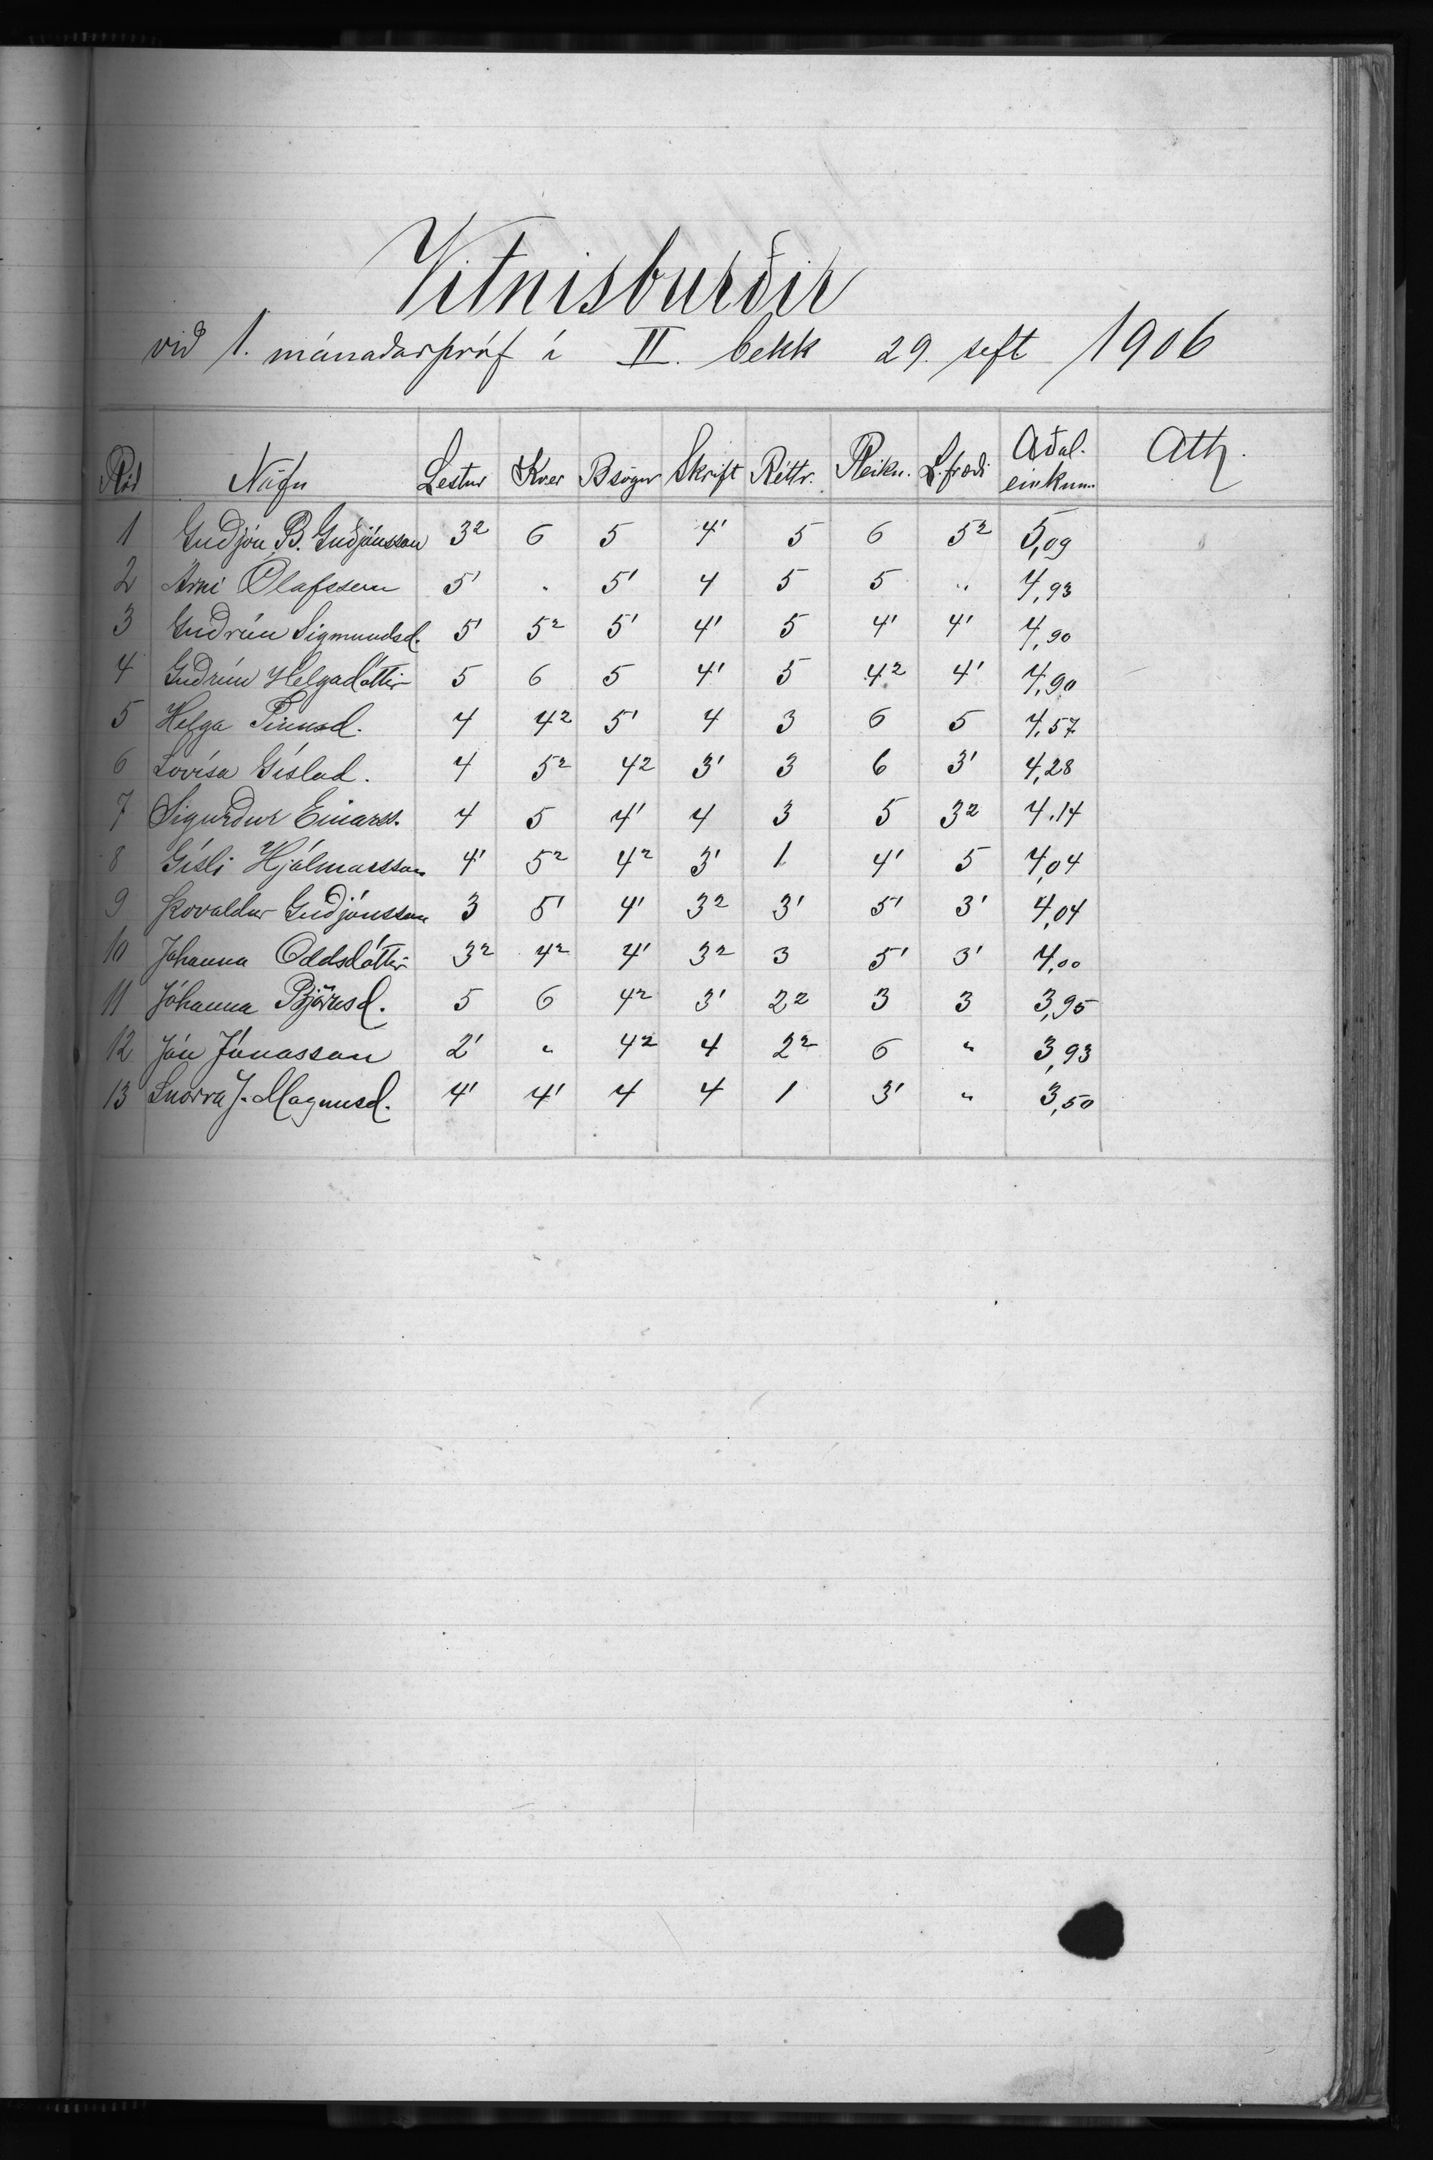 Vitnisburðir
við 1. mánaðarpróf í II. bekk 29. sept 1906
Röð Nöfn Lestur Kver Bsögur Skrift Réttr. Reikn. L.fræði Aðal. einkunn Ath.
1 Guðjón B. Guðjónsson 3² 6 5 4' 5 6 5² 5,09
2 Árni Ólafsson 5' " 5' 4 5 5 " 4,93
3 Guðrún Sigmundsd. 5' 5² 5' 4' 5 4' 4' 4,90
4 Guðrún Helgadóttir 5 6 5 4' 5 4² 4' 4,90
5 Helga Finnsd. 4 4² 5' 4 3 6 5 4,57
6 Lovísa Gíslad. 4 5² 4² 3' 3 6 3' 4,28
7 Sigurður Einarss. 4 5 4' 4 3 5 3² 4,14
8 Gísli Hjálmarsson 4' 5² 4² 3' 1 4' 5 4,04
9 Þorvaldur Guðjónsson 3 5' 4' 3² 3' 5' 3' 4,04
10 Jóhanna Oddsdóttir 3² 4² 4' 3² 3 5' 3' 4,00
11 Jóhanna Björnsd. 5 6 4² 3' 2² 3 3 3,95
12 Jón Jónasson 2' " 4² 4 2² 6 " 3,93
13 Snorra J. Magnusd. 4' 4' 4 4 1 3' " 3,50